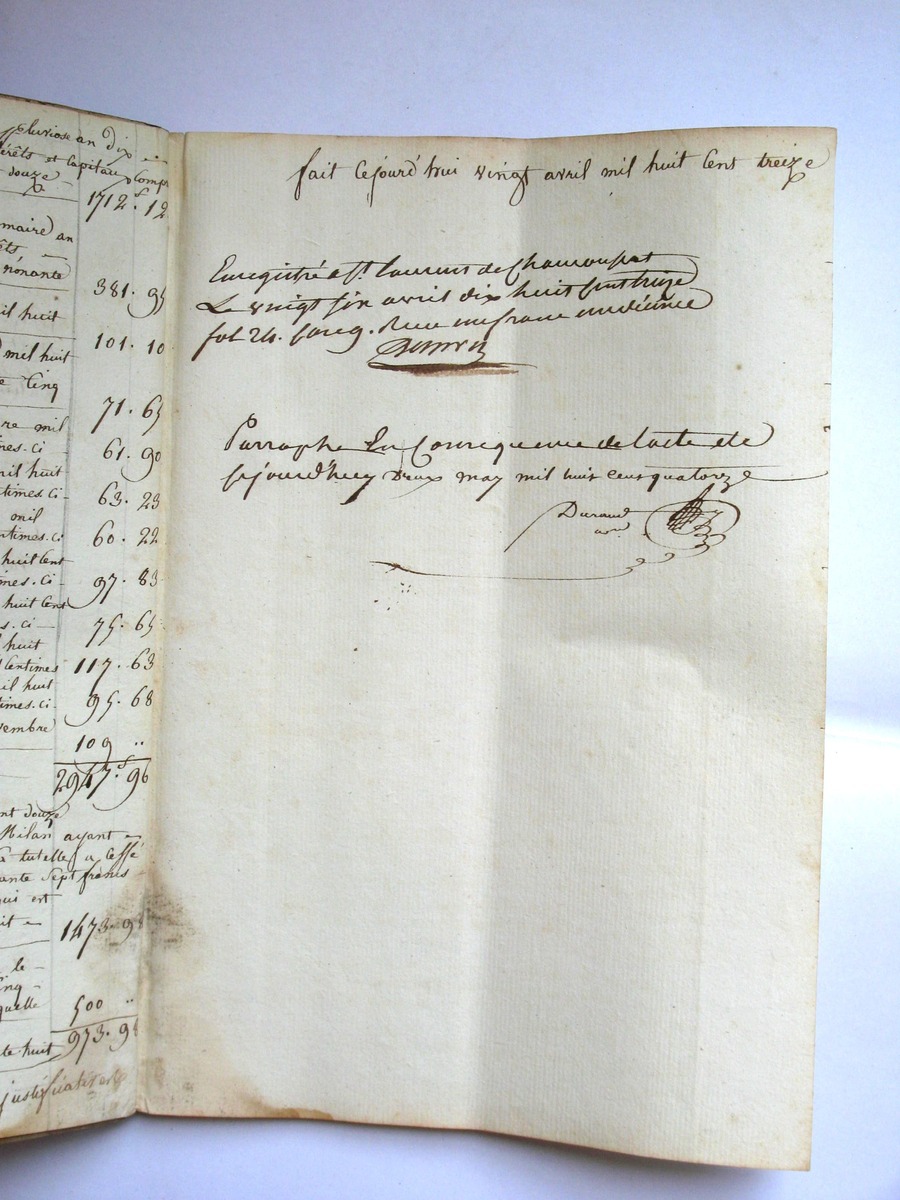 pluviose an dix
érêts et Capitaux Compr
douze
1712.s 12
maire an
êts
nonante
381. 95
il huit
101. 10
mil huit
e Cinq
71. 65
re mil
mes. Ci
61. 90
mil huit
ntimes Ci
63. 23
mil
ntimes. Ci
60. 22
huit Cent
mes. Ci
97. 83
huit Cent
s. Ci
75. 65
huit
Centimes
117. 63
il huit
times. Ci
95. 68
vembre
109 ..
2947.s 96
nt douze
Milan ayant
la tutelle a Cessé
ante Sept francs
qui est
it
1473. 98
le
nq
quelle
500 ..
973. 98
te huit
justificatives
fait Cejourd'hui vingt avril mil huit Cent treize
Enregistré a St. laurent de Chamousset
Le vingt six avril dix huit Cent treize
fol 24. Reçu un franc
Parraphé En Conséquence de lacte de
Cejourd'huy Deux may mil huit Cent quatorze
Durand